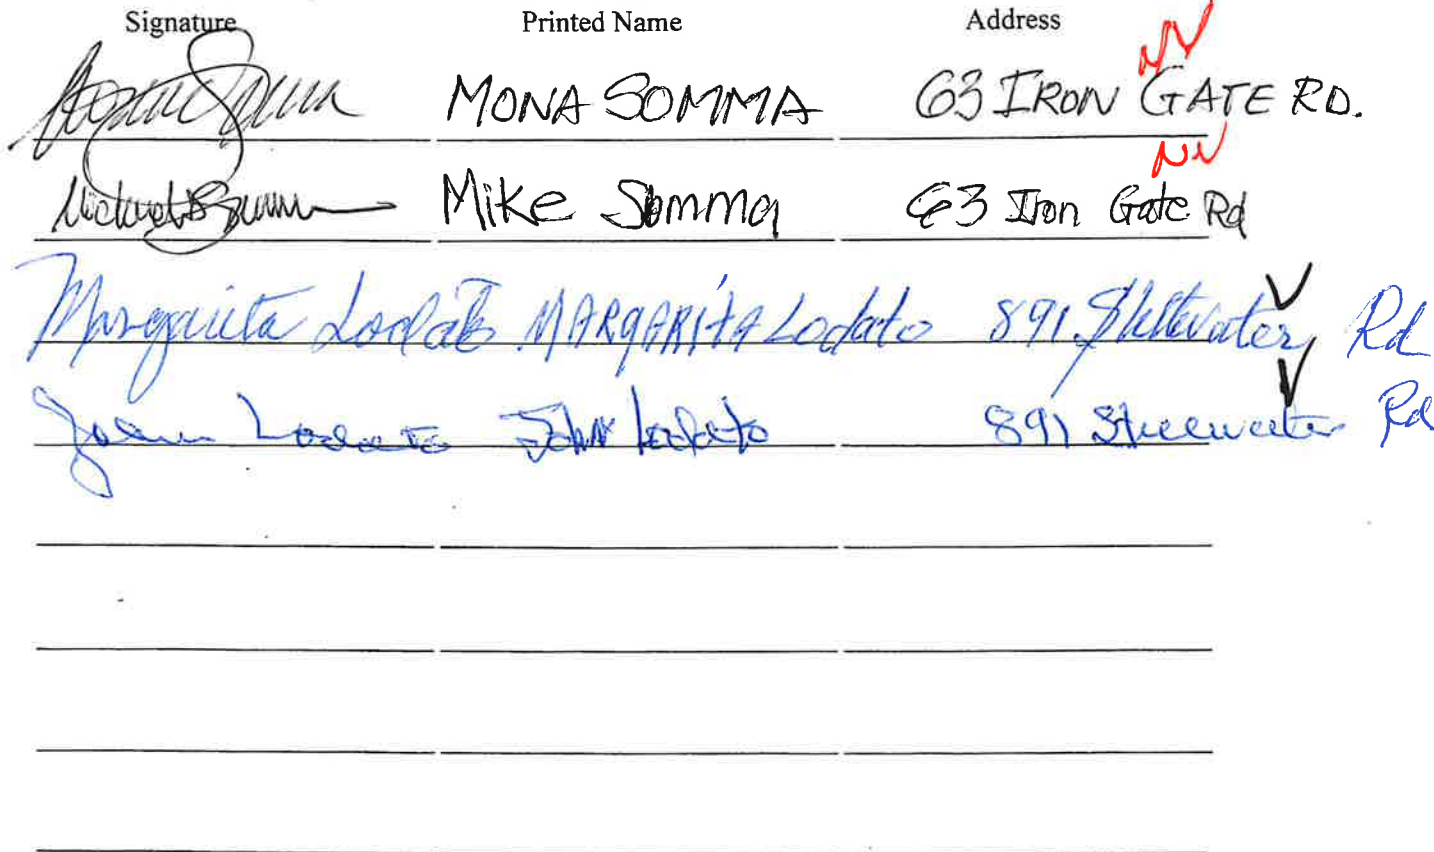 Signature Printed Name Address
Mona Somma MONA SOMMA 63 IRON GATE RD.
Michael Somma Mike Somma 63 Iron Gate Rd
Margarita Lodato MARGARITA Lodato 891 Stillwater Rd
John Lodato John Lodato 891 Stillwater Rd